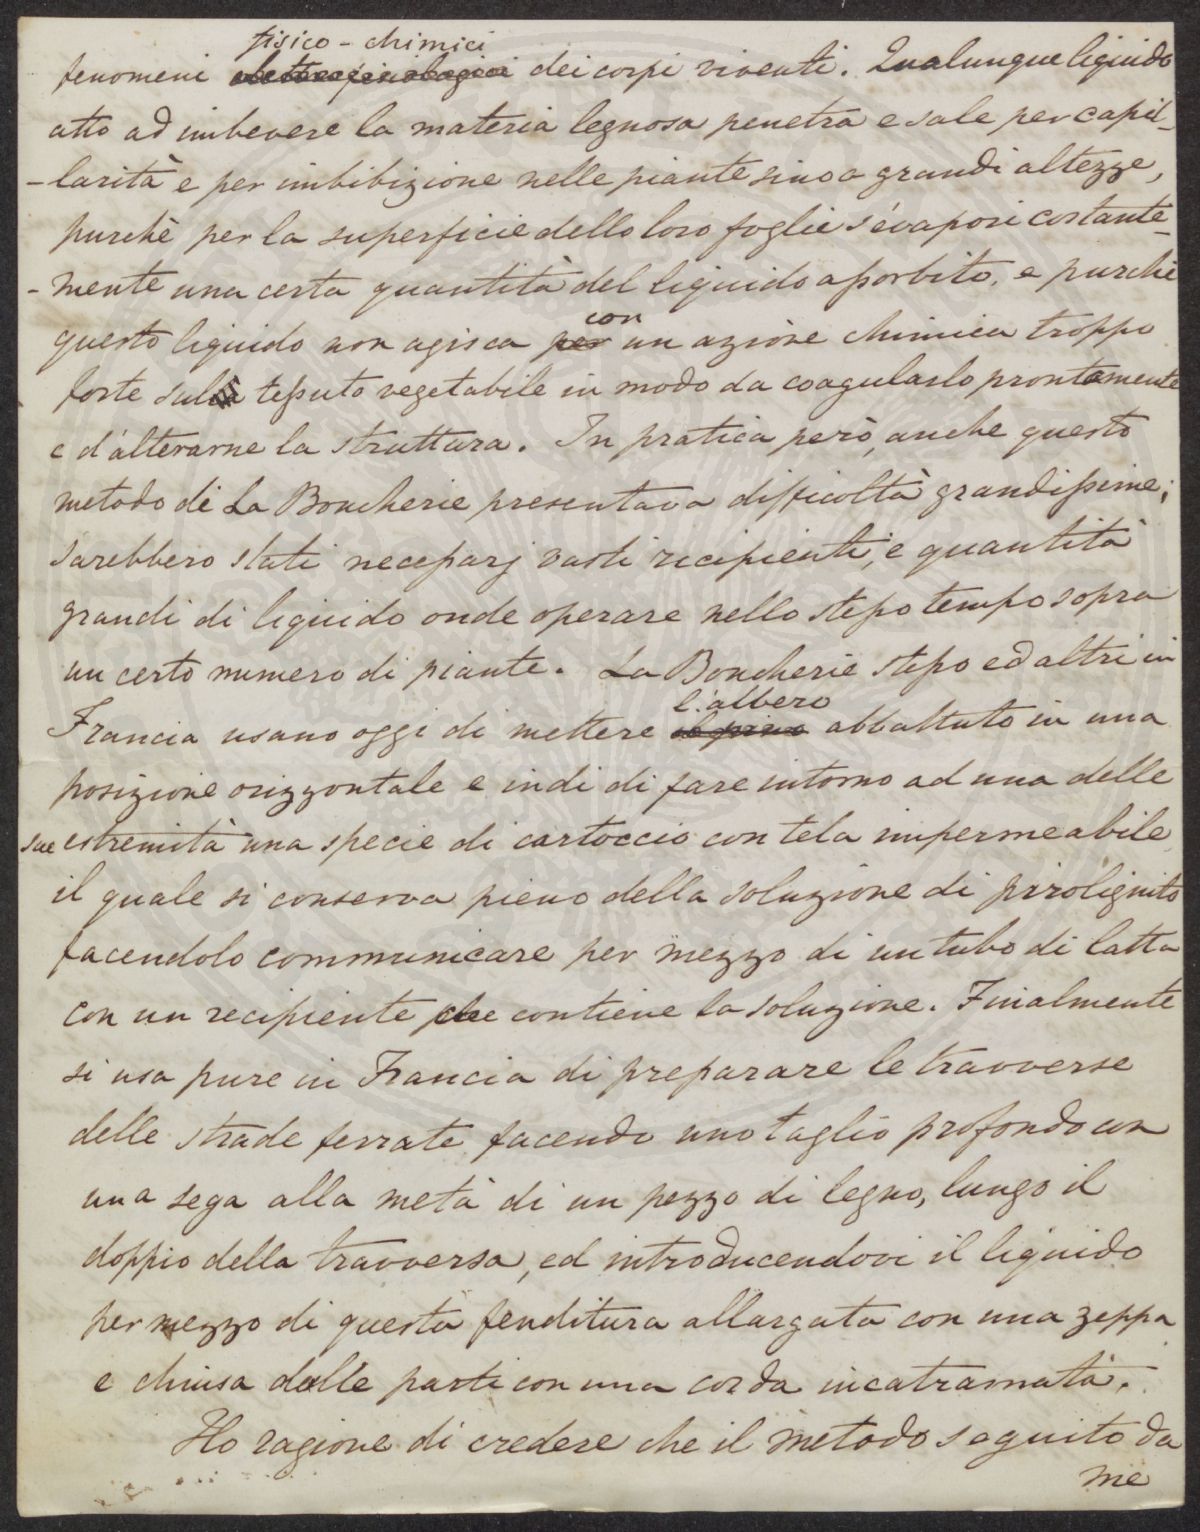 fisico-chimici
fenomeni elettrofisiologici dei corpi viventi. Qualunque liquido
atto ad imbevere la materia legnosa penetra e sale per capil-
-larità e per imbibizione nelle piante sino a grandi altezze,
purchè per la superficie dello loro foglie s'evapori costante-
-mente una certa quantità del liquido assorbito, e purchè
con
questo liquido non agisca per un azione chimica troppo
forte sul tessuto vegetabile in modo da coagularlo prontamente
e d'alterarne la struttura. In pratica però, anche questo
metodo di La Boucherie presentava difficoltà grandissime;
sarebbero stati necessarj vasti recipienti, e quantità
grandi di liquido onde operare nello stesso tempo sopra
un certo numero di piante. La Boucherie stesso ed altri in
l'albero
Francia usano oggi di mettere il pino abbattuto in una
posizione orizzontale e indi di fare intorno ad una delle
sue estremità una specie di cartoccio con tela impermeabile
il quale si conserva pieno della soluzione di pirolignito
facendolo communicare per mezzo di un tubo di latta
con un recipiente che contiene la soluzione. Finalmente
si usa pure in Francia di preparare le travverse
delle strade ferrate facendo uno taglio profondo con
una sega alla metà di un pezzo di legno, lungo il
doppio della travversa, ed introducendovi il liquido
per mezzo di questa fenditura allargata con una zeppa
e chiusa dalle parti con una corda incatramata.
Ho ragione di credere che il metodo seguito da
me